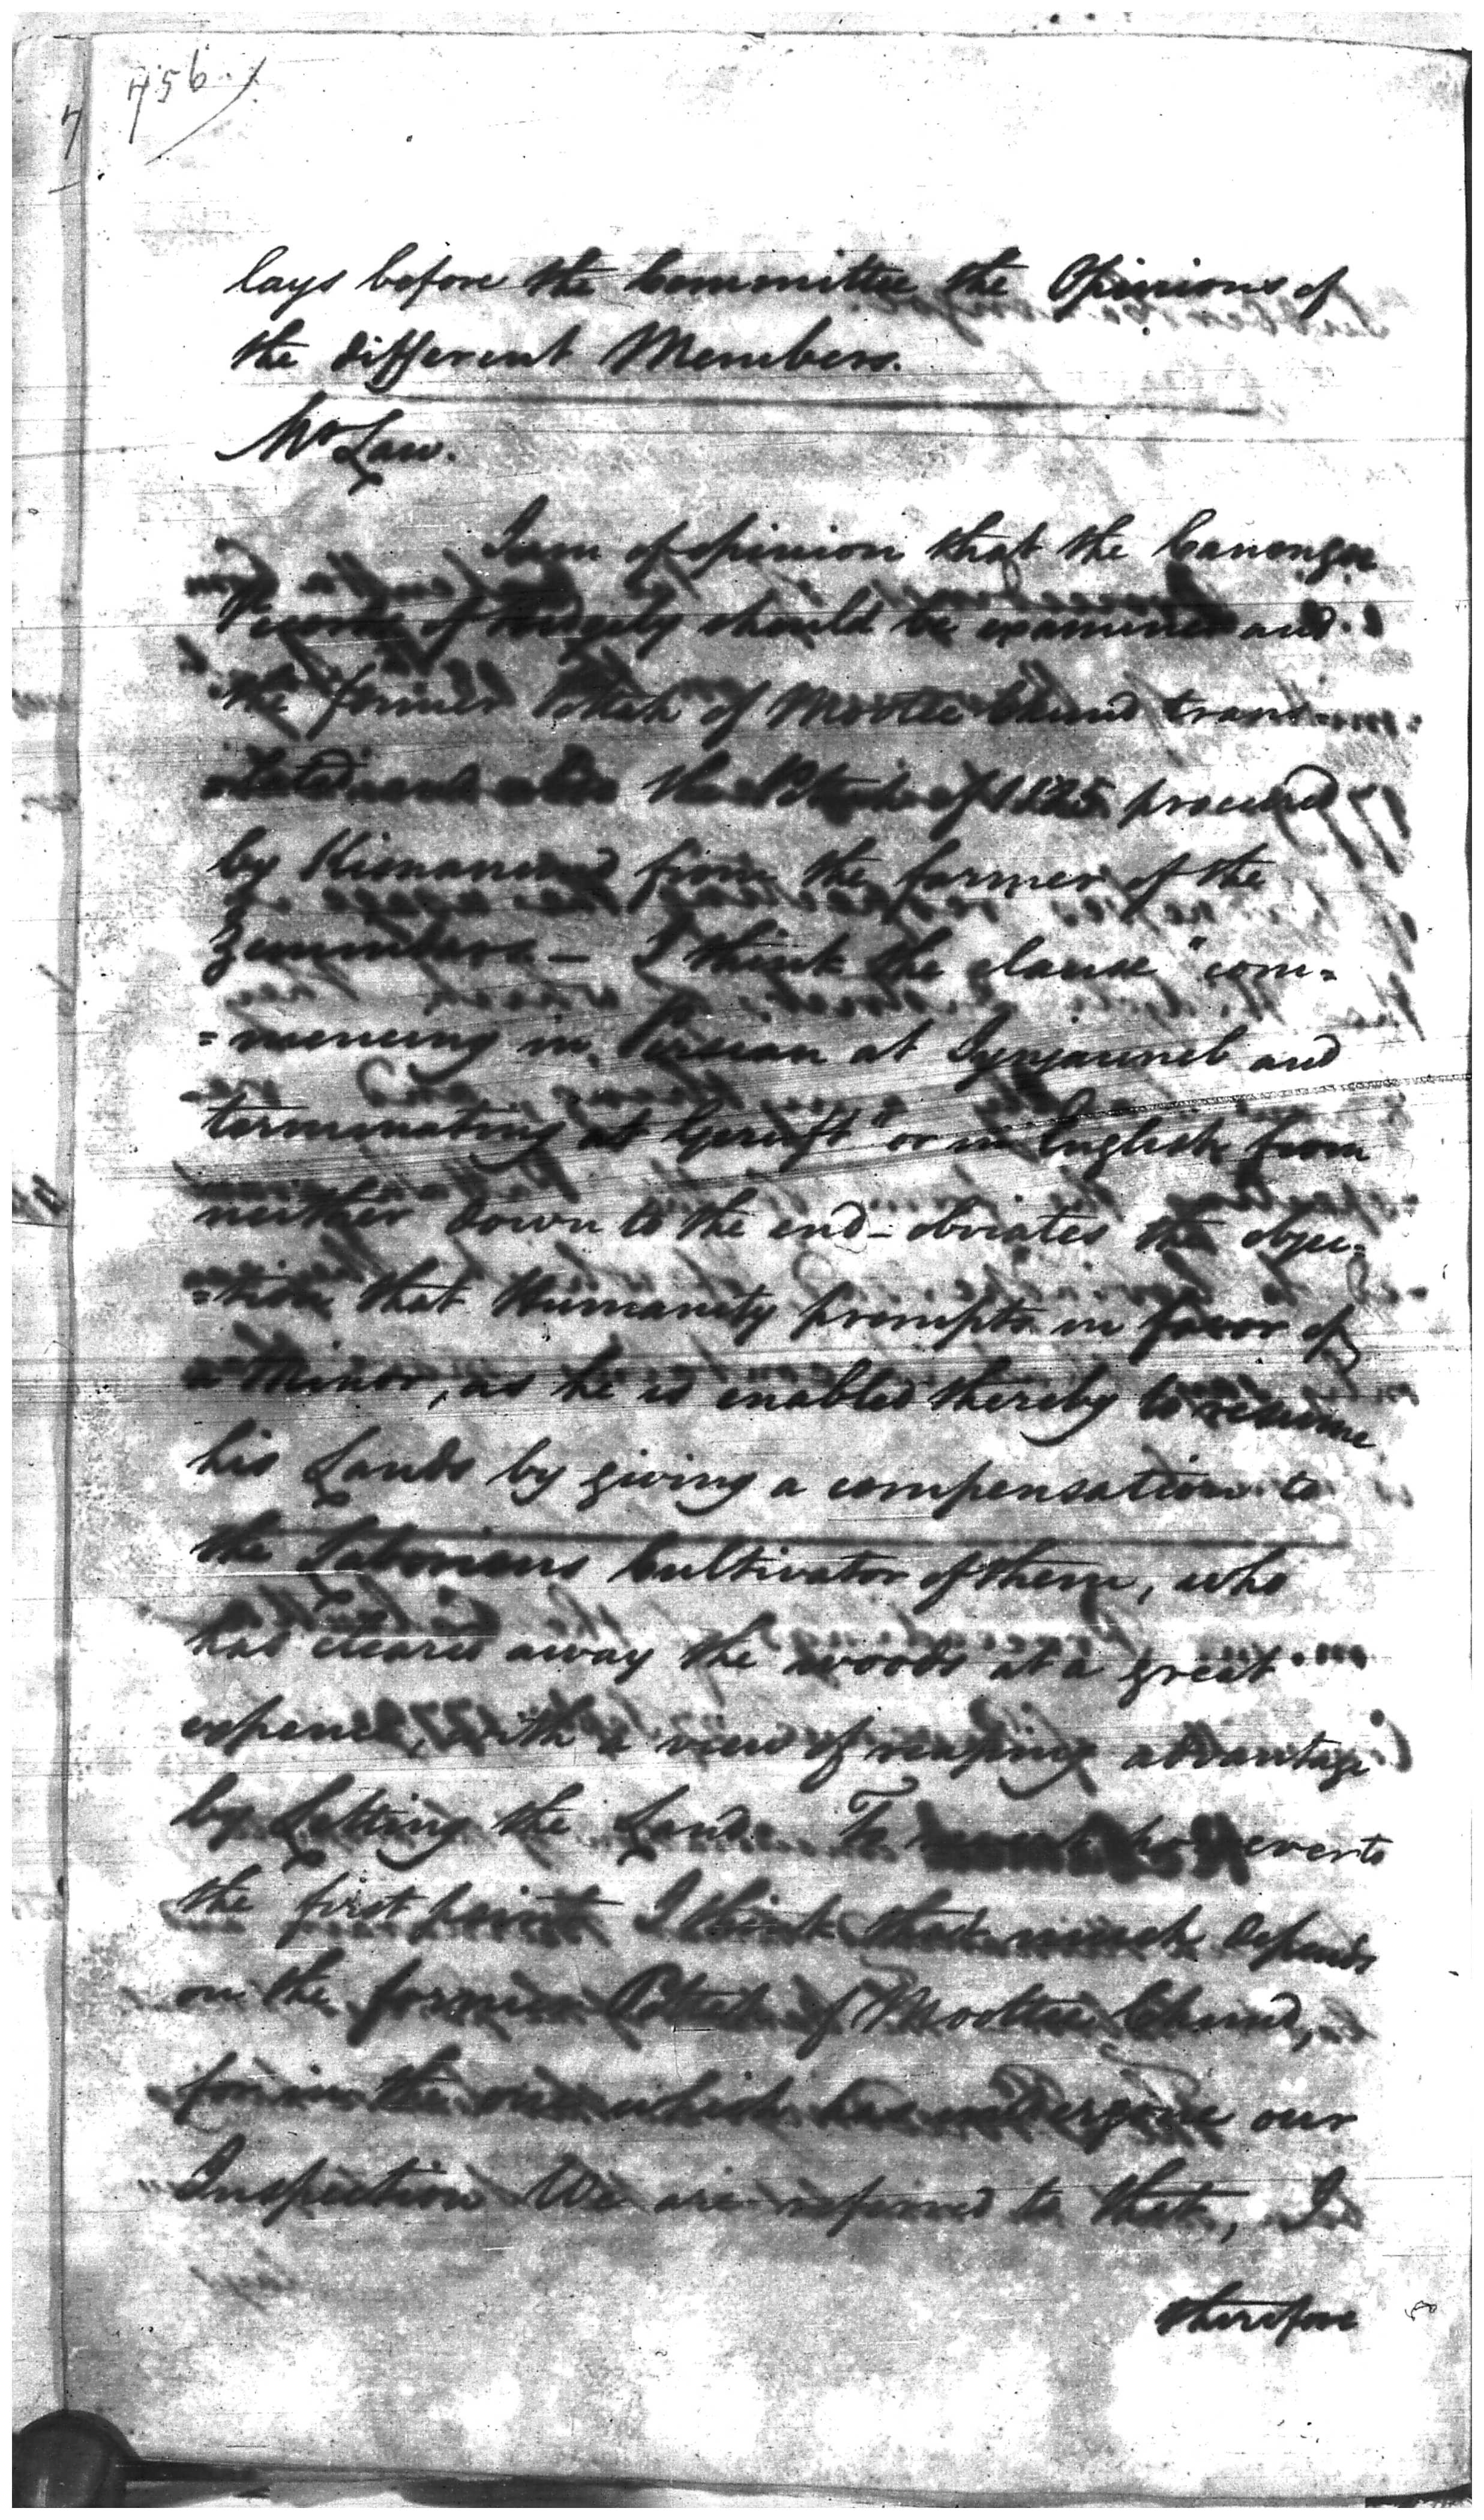 756
lays before the Committee the Opinions of
the different Members.
Mr Law.
I am of opinion that the Canongoe
Records of should be examined and
the former Pottah of Mootee Chund trans=
and also the Pottah of procured
by from the farmer of the
Zemindars — I think the clause "com=
=mencing in Persian at and
terminating at Gerift" or in English from
neither down to the end – obviates the objec=
=tion that Humanity prompts in favor of
a Minor, as he is enabled thereby to resume
his Lands by giving a compensation to
the Laborious Cultivator of them, who
has cleared away the woods at a great
expence, with a view of reaping advantage
by Letting the Land. To
the first point I think that much depends
on the former Pottah of Mootee Chund,
for in the one which has undergone our
Inspection We are referred to that, I
therefore